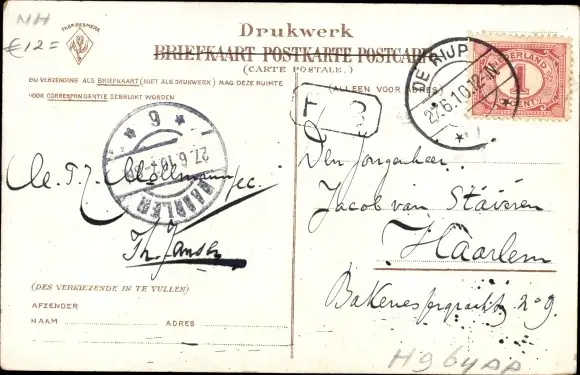 NH
€12=
FABRIEKSMERK
Drukwerk
BRIEFKAART POSTKARTE POSTCARD
(CARTE POSTALE.)
BIJ VERZENDING ALS BRIEFKAART (NIET ALS DRUKWERK) MAG DEZE RUIMTE
VOOR CORRESPONDENTIE GEBRUIKT WORDEN
(ALLEEN VOOR ADRES)
DE RIJP
27.6.10.12-1N
NEDERLAND
1
CENT
T
HAARLEM
27.6.10
6
Den Jongeheer
Jacob van Staveren
Haarlem
Bakenessergracht no 9.
Th. Jansen
(DES VERKIEZENDE IN TE VULLEN)
AFZENDER
NAAM ADRES
H964AA